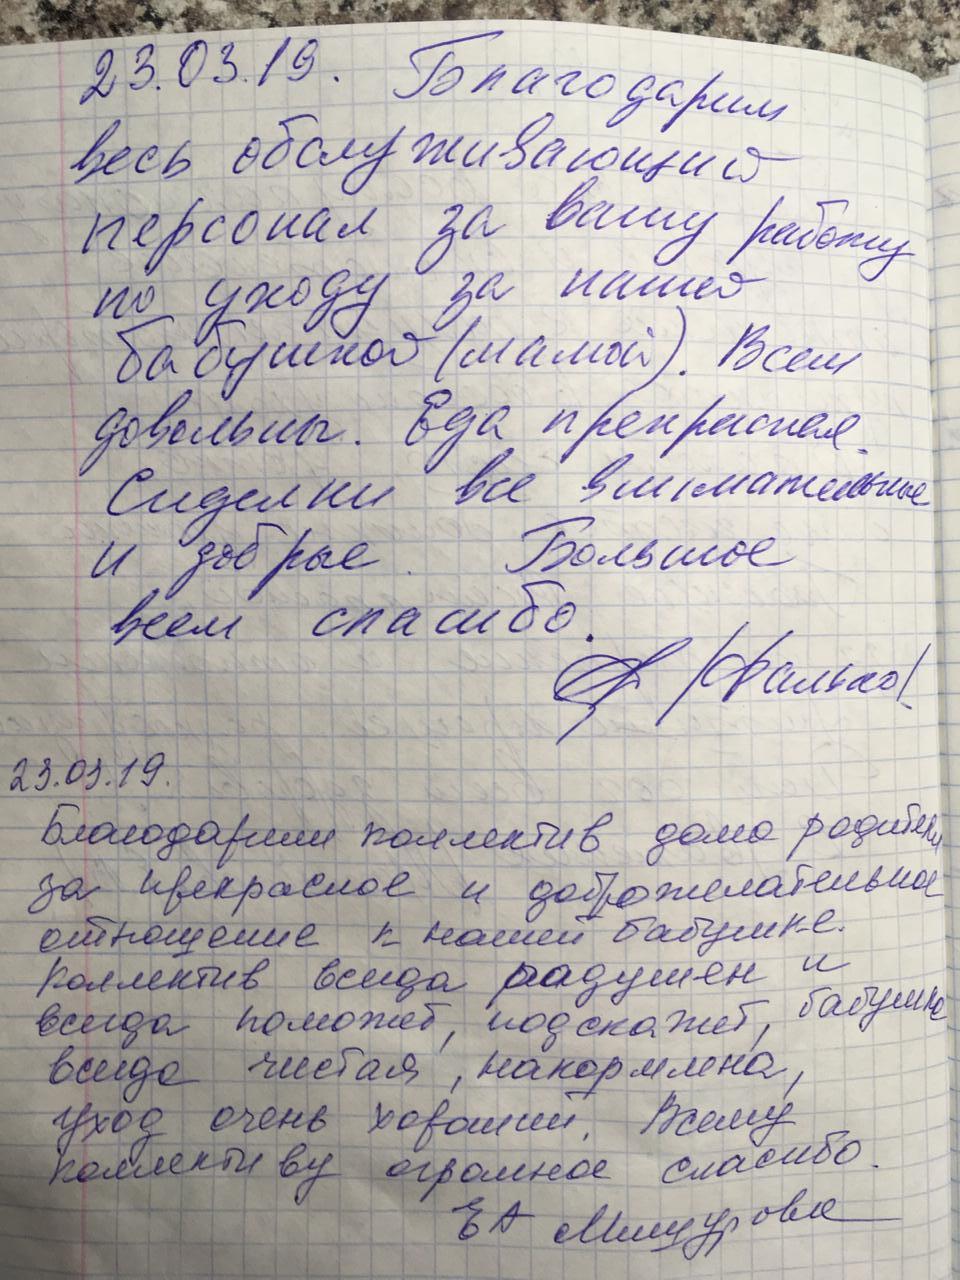 23.03.19. Благодарим
весь обслуживающий
персонал за вашу работу
по уходу за нашей
бабушкой (мамой). Всем
довольны. Еда прекрасная.
Сиделки все внимательные
и добрые. Большое
всем спасибо.
/Фалько/
23.03.19.
Благодарим коллектив дома родители
за прекрасное и доброжелательное
отношение к нашей бабушке.
Коллектив всегда радушен и
всегда поможет, подскажет, бабушка
всегда чистая, накормлена,
уход очень хороший. Всему
коллективу огромное спасибо.
ЕА